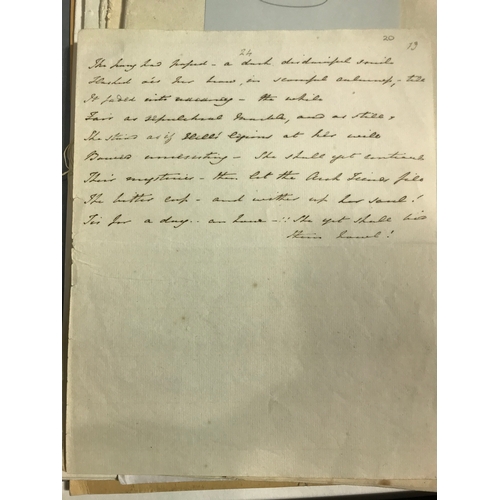 20
19
24
The pang had passed - a dark disdainful smile
Flushed o'er her brow, in scornful calmness, - till
It faded into vacancy - the while
Fair as sepulchral marble, and as still,
She stood as if Hell's legions at her will
Bowed unresisting - She shall yet
Their mysteries - then let the Arch Fiends fill
The bitter cup - and wither up her soul!
Tis for a day .. an hour - :: She yet shall